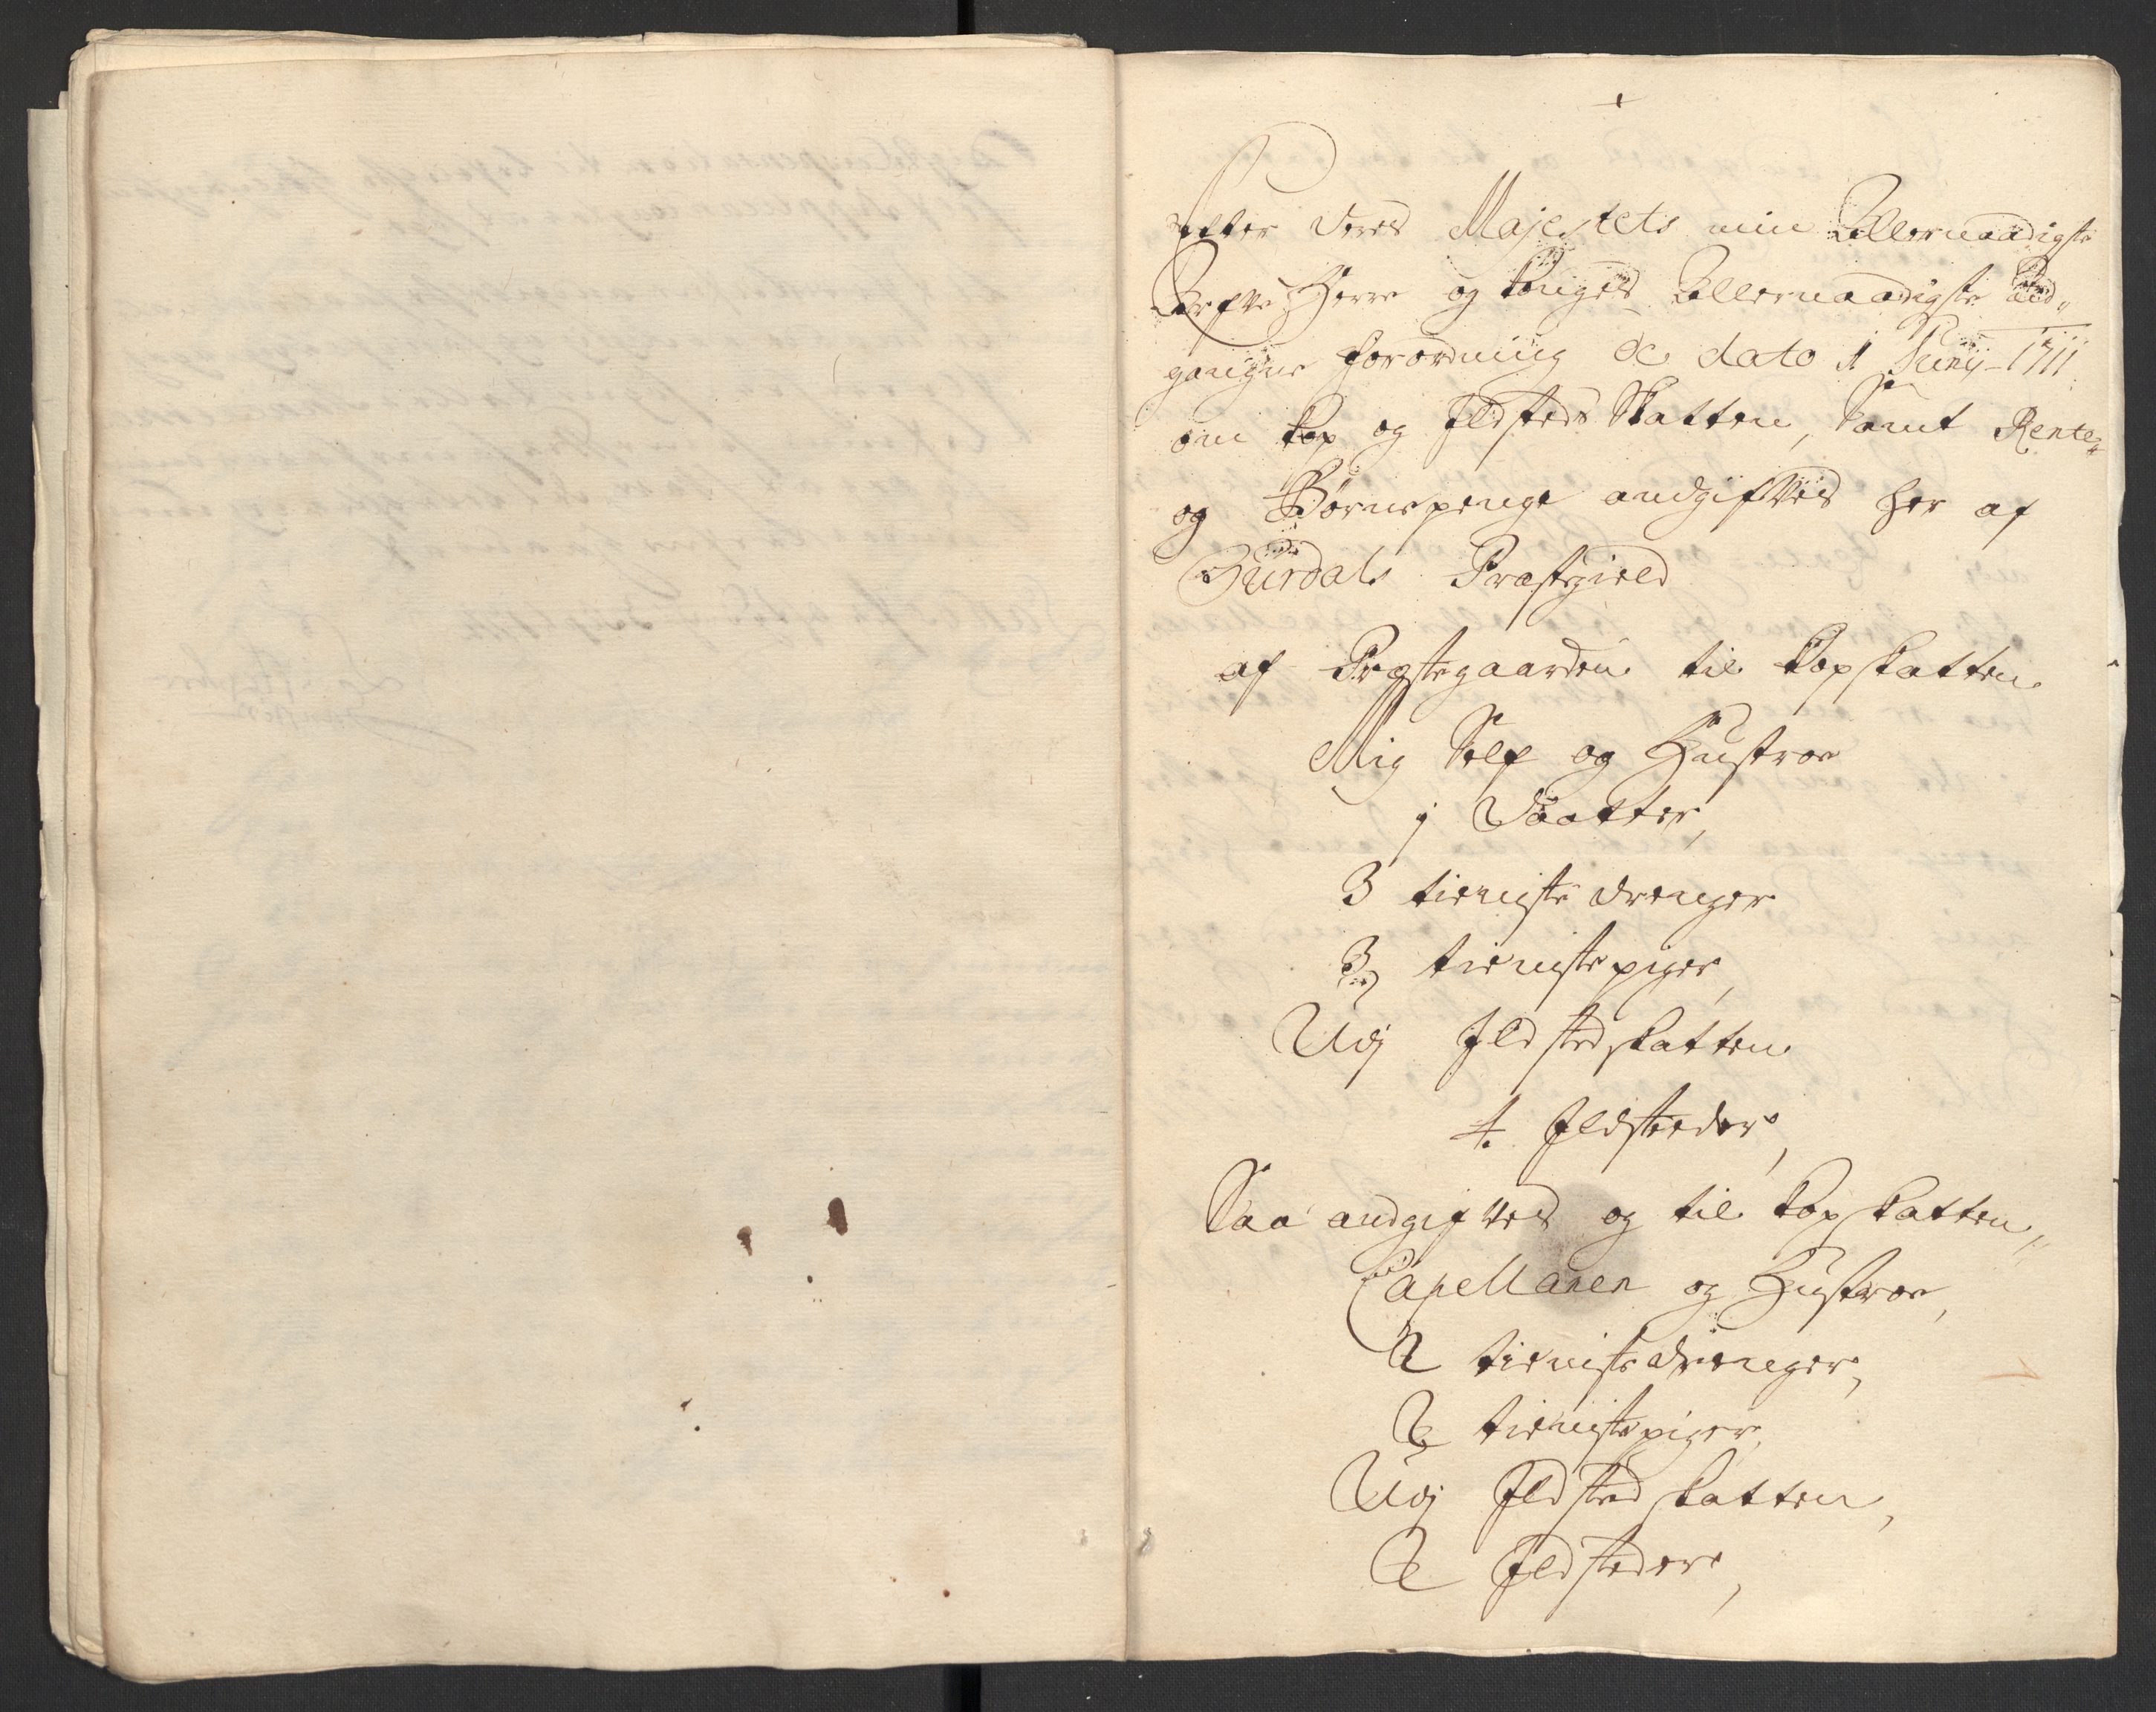 Efter Deres Majestets min Allernaadigste
Arfve Herre og Konges Allernaadigste ud„
gangne forordning de dato 1 Junij 1711
om Kop og Ildsteds Skatten, samt Rente„
og Børnepenge andgifves her af
Suurdals Præstegield
af Præstegaarden til Kopskatten
Mig Self og Hustroe
j Daatter,
3 tieniste drenger
3 tienistepiger,
Udj Ildstedskatten
4. Ildsteeder,
Saa andgifves og til Kopskatten,
Capellanen og Hustroe,
2 tienistedrenger,
2 tienistepiger,
Udj Ildstedskatten,
2 Ildsteder,